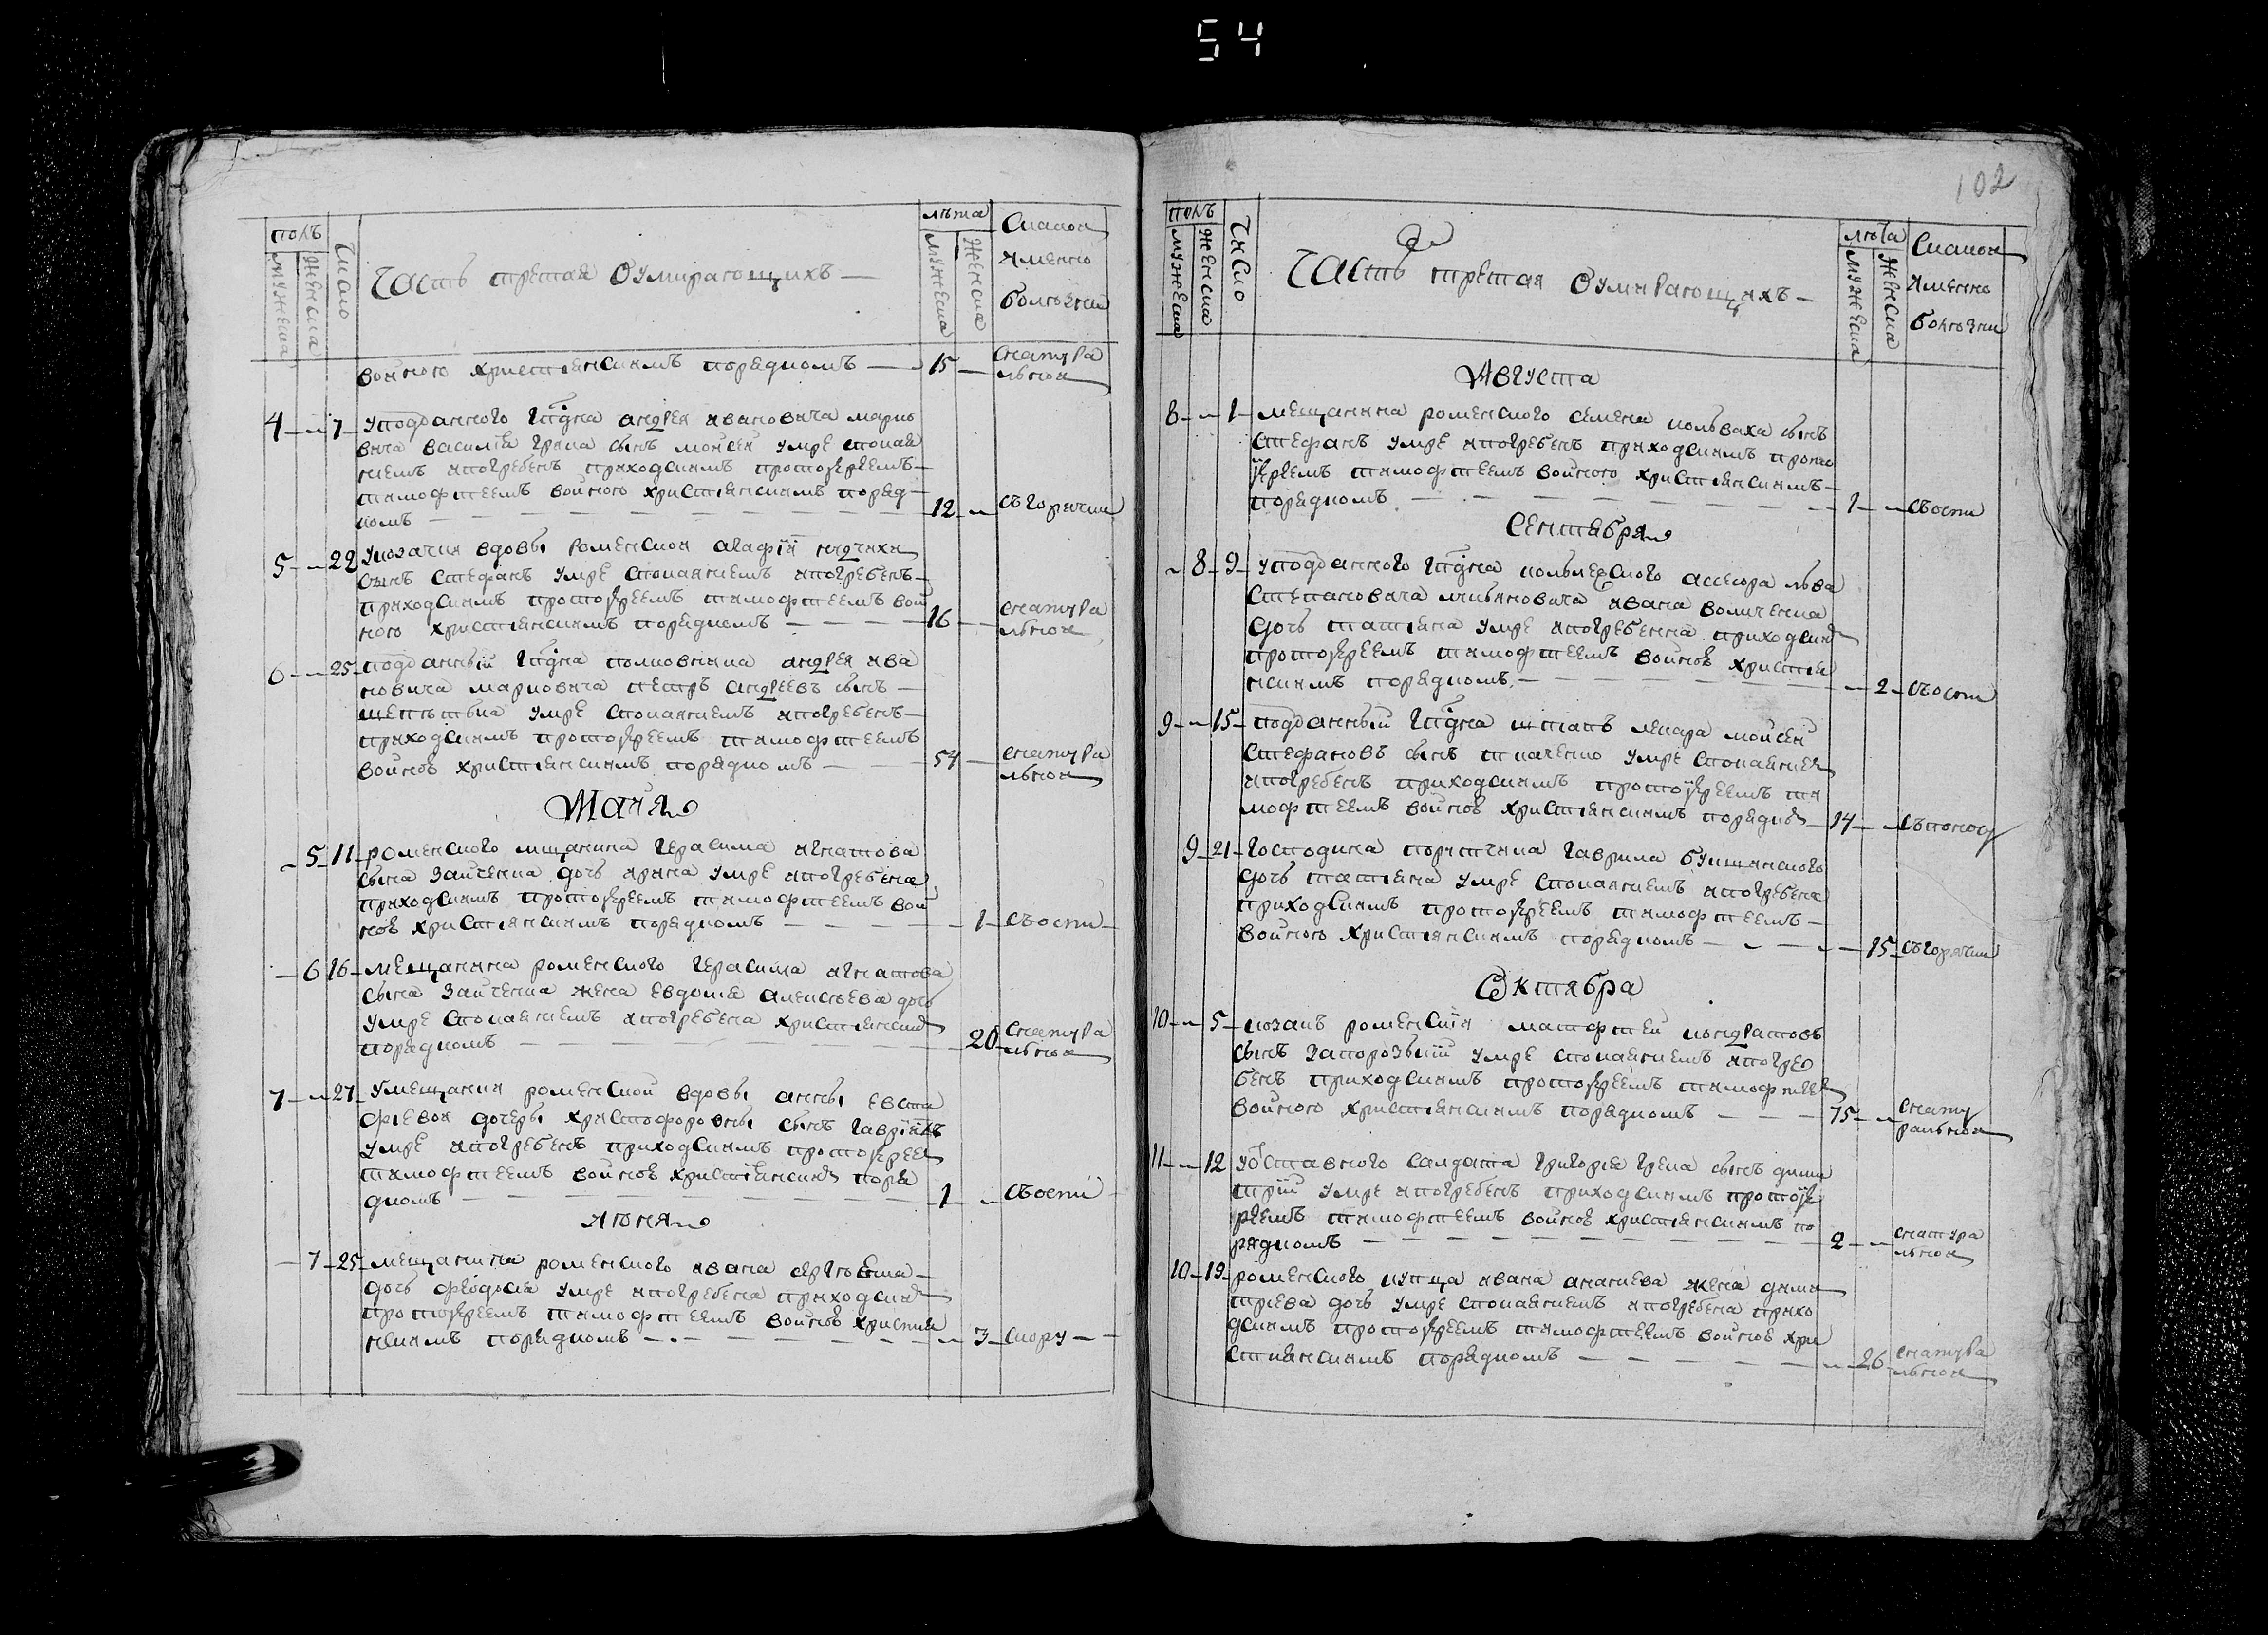 54
полъ
мужеска
женска
число
Часть третая Оумирающихъ
лѣта
мужеска
женска
Снакои
именно
болѣзни
войного христіянскимъ порядкомъ 15 снатура
льнои
4 7 уподданного гпдна андрея ивановича марко
вича василія грека сынъ моисей умре спокая
ниемъ ипогребенъ приходскимъ протоїереемъ
тимофтеемъ войного христіянскимъ поряд
комъ 12 съгорячки
5 22 указачки вдовы роменскои агафіи
сынъ стефанъ умре спокаяниемъ ипогребенъ
приходскимъ протоїереемъ тимофтеемъ вой
ного христіянскимъ порядкомъ 16 снатура
льнои
6 25 подданный гпдна полковника андрея ива
новича марковича петръ андреевъ сынъ
умре спокаяниемъ ипогребенъ
приходскимъ протоїереемъ тимофтеемъ
войнов христіянскимъ порядкомъ 54 снатура
льнои
Маия
5 11 роменского мщанина герасима игнатова
сына заиченка дочъ ирина умре ипогребена
приходскимъ протоїереемъ тимофтеемъ вой
нов христіянскимъ порядкомъ 1 съоспи
6 16 мещанина роменского герасима игнатова
сына заиченка жена евдокия алексѣева дочъ
умре спокаяниемъ ипогребена христіянским
порядкомъ 20 снатура
льнои
7 27 умещанки роменской вдовы анны евста
фіевои дочеры христофоровны сынъ гавріилъ
умре ипогребенъ приходскимъ протоїерее
тимофтеемъ войнов христіянским поря
дкомъ 1 съоспи
июня
7 25 мещанина роменского ивана
дочъ феодосія умре ипогребена приходским
протоїереемъ тимофтеемъ войнов христия
нскимъ порядкомъ 3 скору
102
полъ
мужеска
женска
число
Часть третая Оумирающихъ
лѣта
мужеска
женска
Снакои
именно
болѣзни
Августа
8 1 мещанина роменского семена колваха сынъ
стефанъ умре ипогребенъ приходскимъ прото
їереемъ тимофтеемъ войного христіянскимъ
порядкомъ 1 съоспи
Сентября
8 9 уподданного гпдна колълежского ассесора лва
степановича ивана воличенка
дочъ татіяна умре ипогребенна приходским
протоїереемъ тимофтеемъ войнов христия
нскимъ порядкомъ 2 съоспи
9 15 подданный гпдна штапъ лекара моисей
стефановъ сынъ ткаченко умре спокаяния
ипогребенъ приходскимъ протоїереемъ ти
мофтеемъ войнов христіянскимъ порядко 14 съпоносу
9 21 господина порутчика гаврила
дочъ татіяна умре спокаяниемъ ипогребена
приходскимъ протоїереемъ тимофтеемъ
войного христіянскимъ порядкомъ 15 съгорячки
Октября
10 5 козакъ роменскій матфтей кондратовъ
сынъ запорозкий умре спокаяниемъ ипогре
бенъ приходскимъ протоїереемъ тимофтеем
войного христіянскимъ порядкомъ 75 снату
ральнои
11 12 уотставного салдата григорія грека сынъ дими
трій умре ипогребенъ приходскимъ протоїе
реемъ тимофтеемъ войнов христіянскимъ по
рядкомъ 2 снатура
льнои
10 19 роменского купца ивана ананиева жена дими
триева дочъ умре спокаяниемъ ипогребена прихо
дскимъ протоїереемъ тимофтеемъ войнов хри
стиянскимъ порядкомъ 26 снатура
льнои